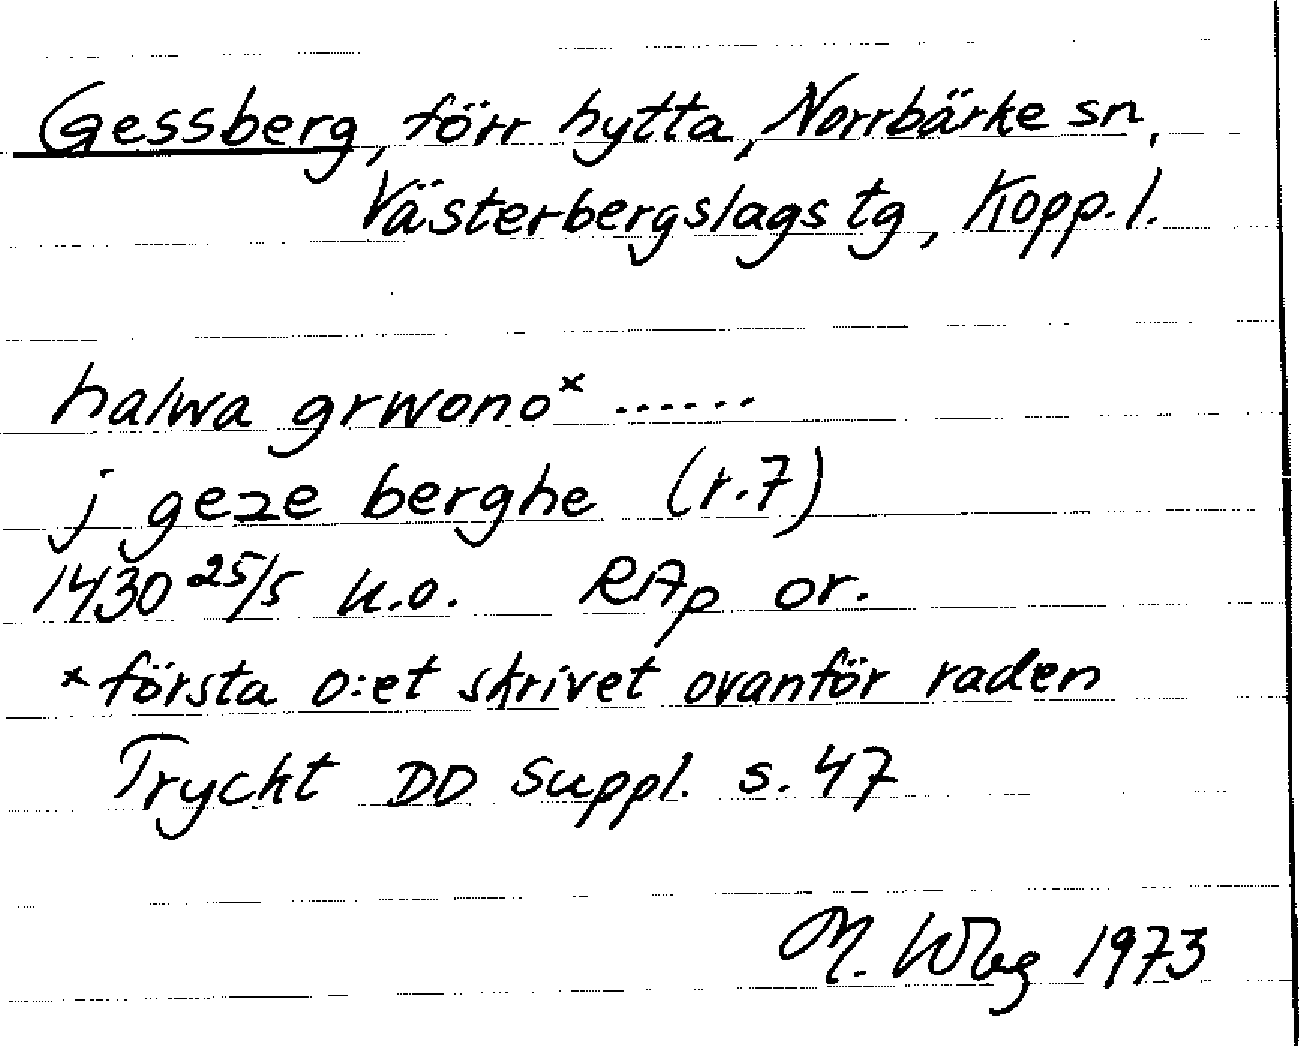 Gessberg, förr hytta, Norrbärke sn,
Västerbergslags tg, Kopp. l.
halwa grwono* ......
j geze berghe (r.7)
1430 25/5 u.o. RAp or.
* första o:et skrivet ovanför raden
Tryckt DD Suppl. s. 47
M. Wbg 1973